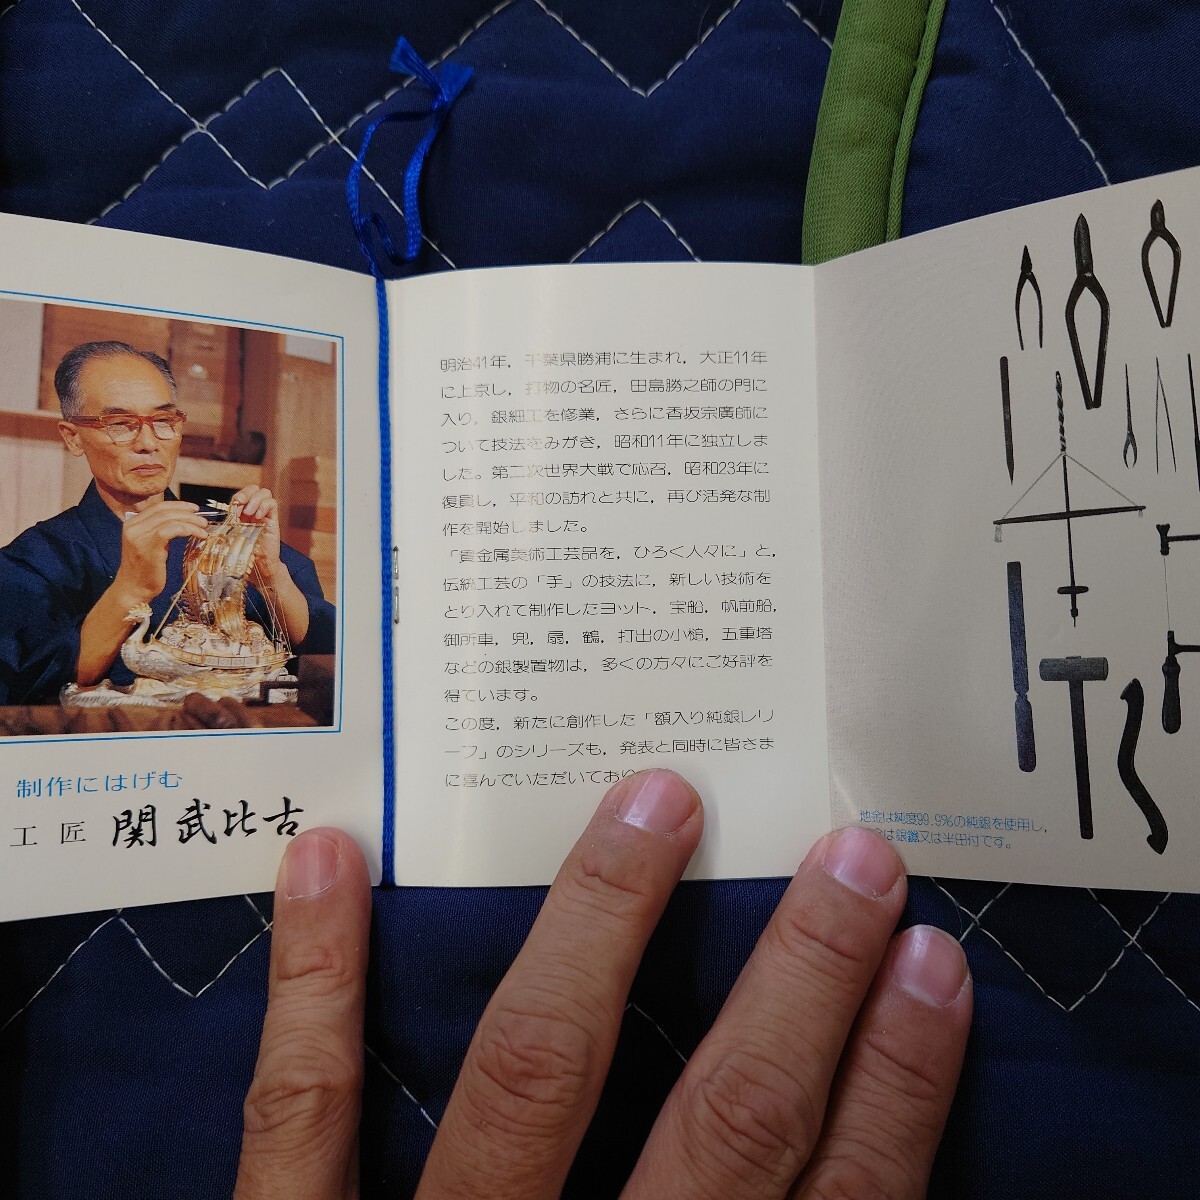 制作にはげむ
工匠 関武比古
明治41年，千葉県勝浦に生まれ，大正11年
に上京し，打物の名匠，田島勝之師の門に
入り，銀細工を修業，さらに香坂宗廣師に
ついて技法をみがき，昭和11年に独立しま
した。第二次世界大戦で応召，昭和23年に
復員し，平和の訪れと共に，再び活発な制
作を開始しました。
「貴金属美術工芸品を，ひろく人々に」と，
伝統工芸の「手」の技法に，新しい技術を
とり入れて制作したヨット，宝船，帆前船，
御所車，兜，扇，鶴，打出の小槌，五重塔
などの銀製置物は，多くの方々にご好評を
得ています。
この度，新たに創作した「額入り純銀レリ
ーフ」のシリーズも，発表と同時に皆さま
に喜んでいただいており
地金は純度99.9%の純銀を使用し，
は銀鑞又は半田付です。